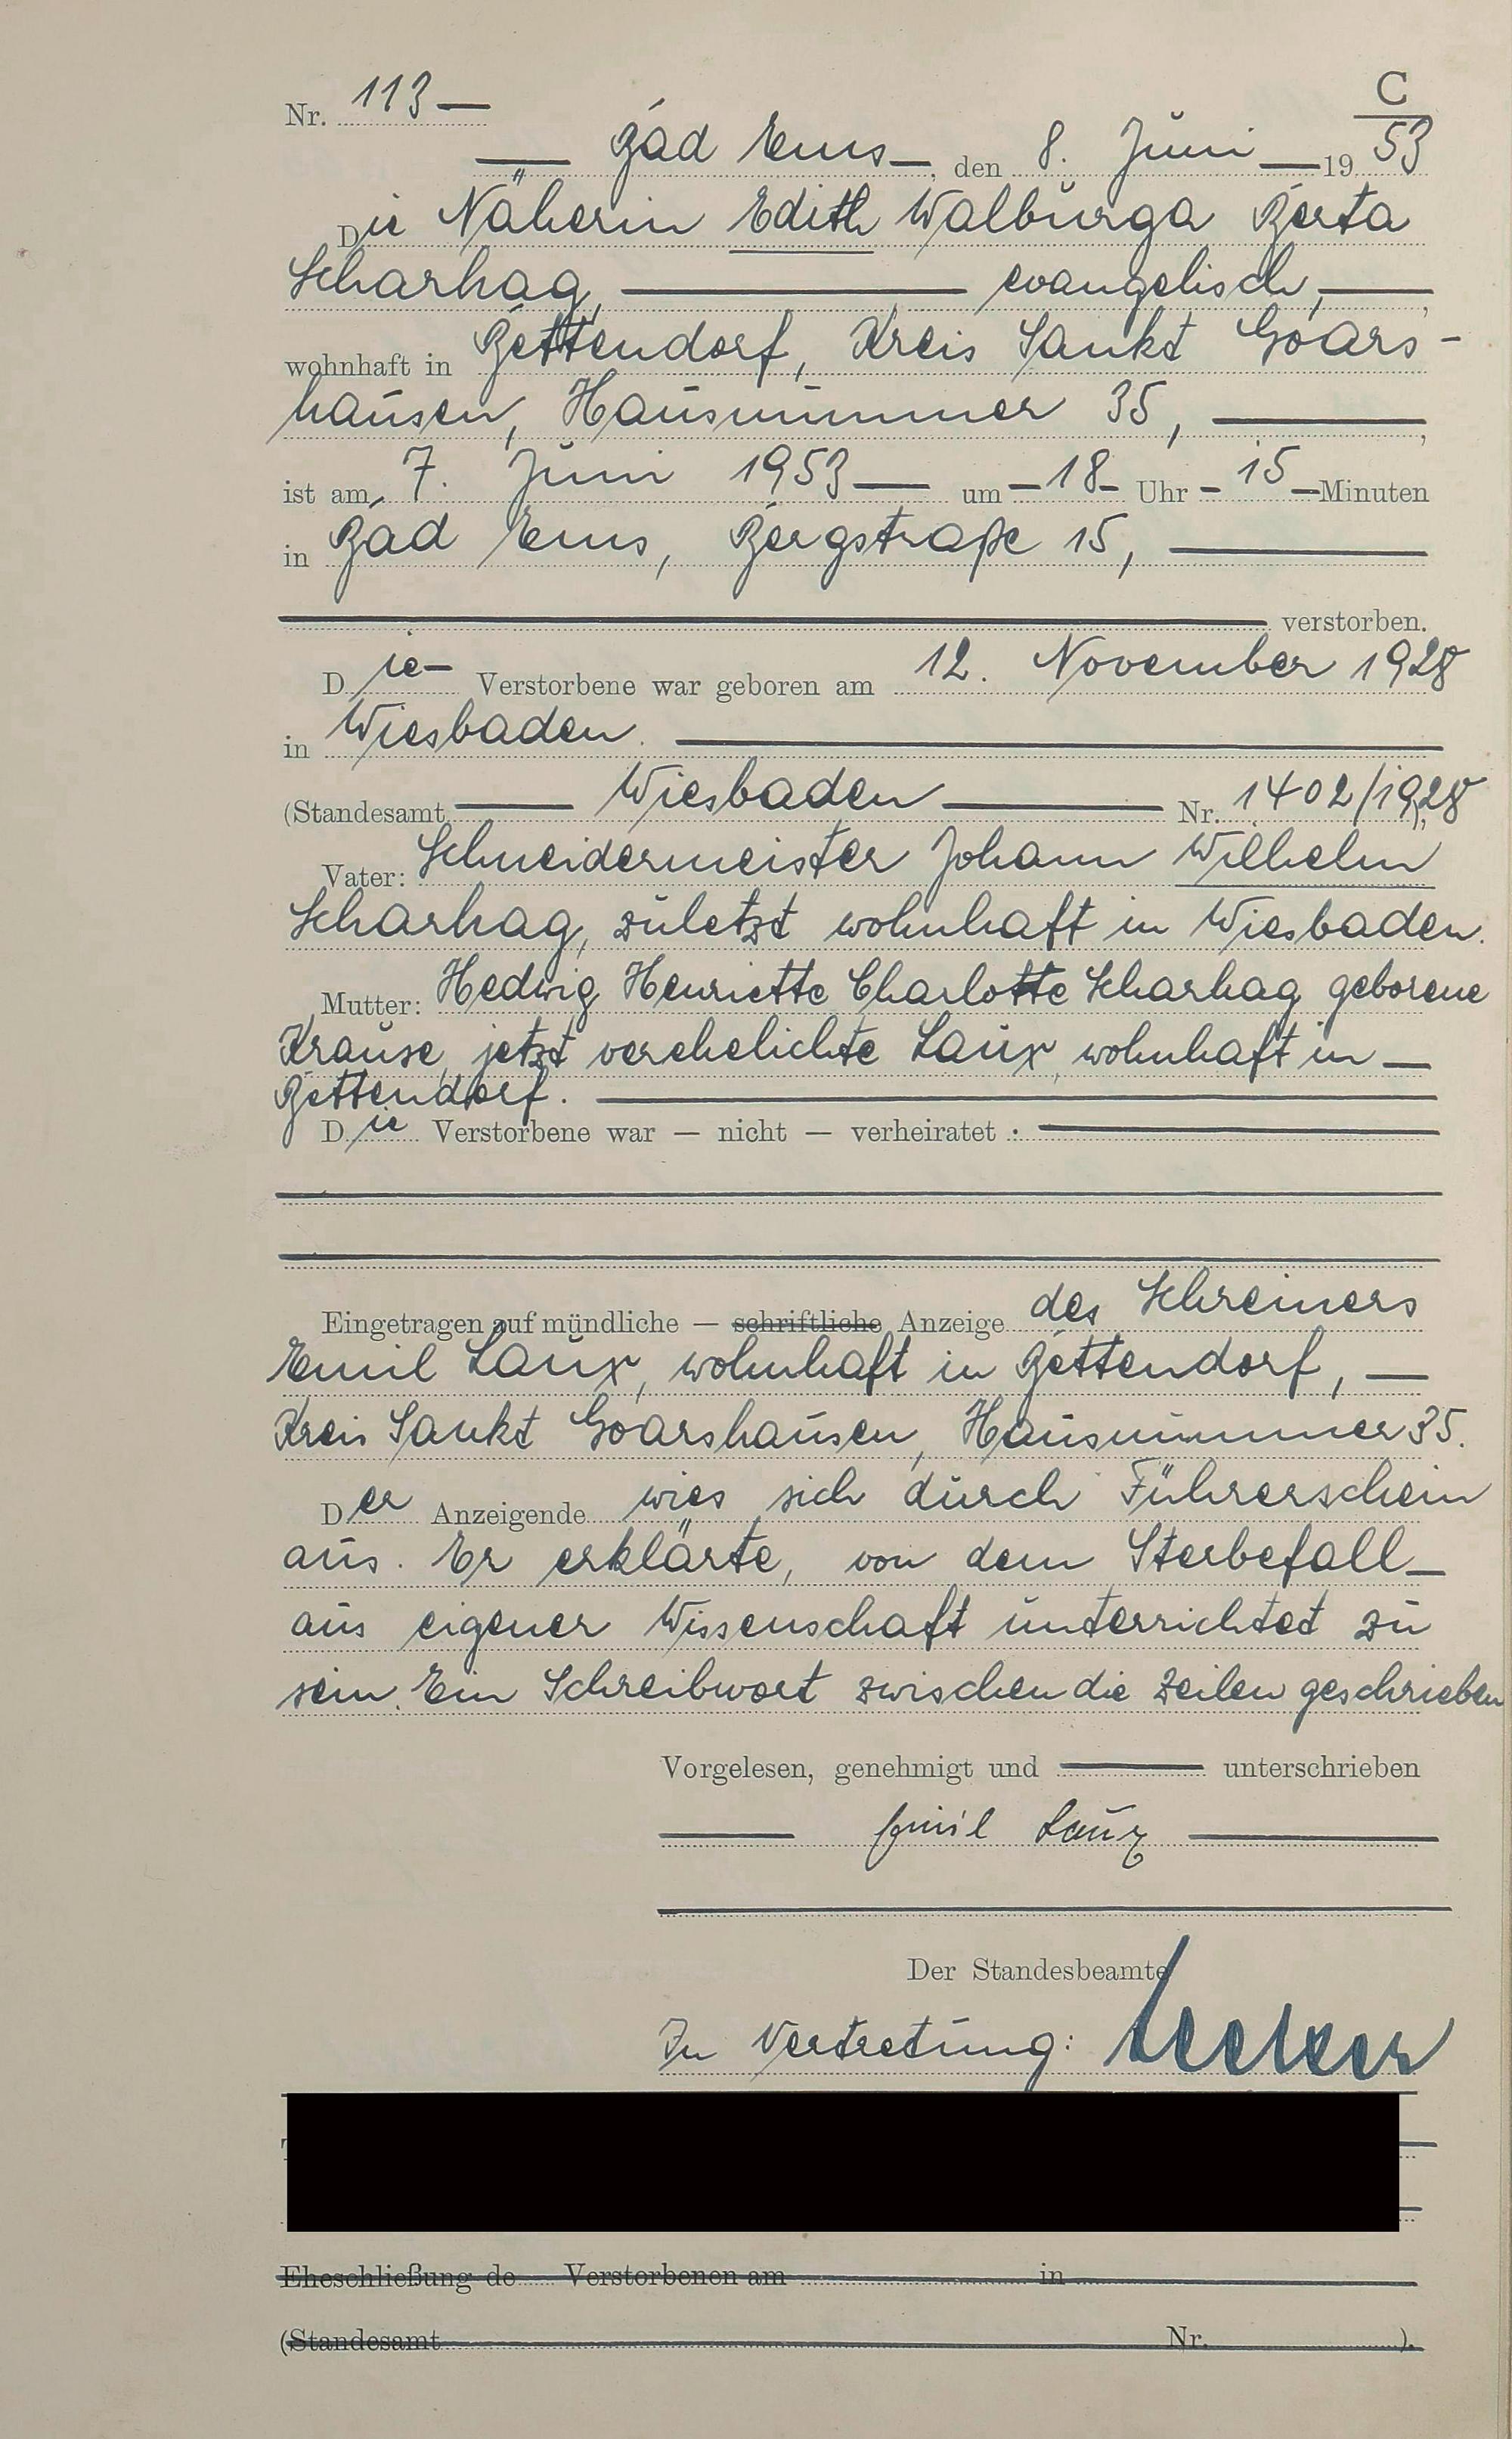 C
Nr. 113 —
— Bad Ems —, den 8. Juni — 19 53
Die Näherin Edith Walburga Berta
Scharhag, — evangelisch, —
wohnhaft in Bettendorf, Kreis Sankt Goars-
hausen, Hausnummer 35, —,
ist am 7. Juni 1953 — um — 18 — Uhr — 15 — Minuten
in Bad Ems, Bergstraße 15, —
— verstorben.
Die — Verstorbene war geboren am 12. November 1928
in Wiesbaden. —
(Standesamt — Wiesbaden — Nr. 1402/1928),
Vater: Schneidermeister Johann Wilhelm
Scharhag, zuletzt wohnhaft in Wiesbaden.
Mutter: Hedwig Henriette Charlotte Scharhag geborene
Krause, jetzt verehelichte Laux, wohnhaft in —
Bettendorf. —
Die Verstorbene war — nicht — verheiratet . —
Eingetragen auf mündliche — schriftliche Anzeige des Schreiners
Emil Laux, wohnhaft in Bettendorf, —
Kreis Sankt Goarshausen, Hausnummer 35.
Der Anzeigende wies sich durch Führerschein
aus. Er erklärte, von dem Sterbefall —
aus eigener Wissenschaft unterrichtet zu
sein. Ein Schreibwort zwischen die Zeilen geschrieben
Vorgelesen, genehmigt und — unterschrieben
— Emil Laux —
Der Standesbeamte
In Vertretung:
Eheschließung de Verstorbenen am in
(Standesamt Nr. ).